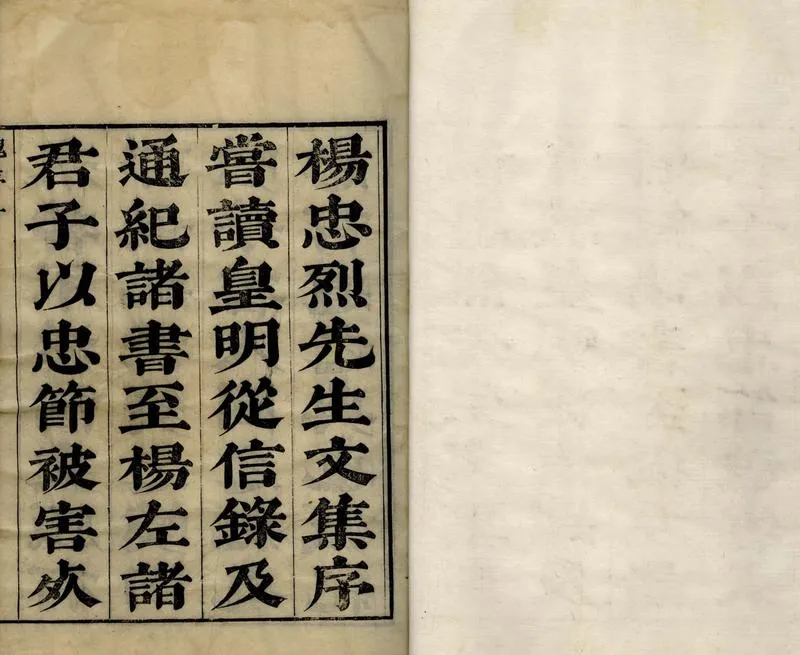 楊忠烈先生文集序
嘗讀皇明從信錄及
通紀諸書至楊左諸
君子以忠節被害处